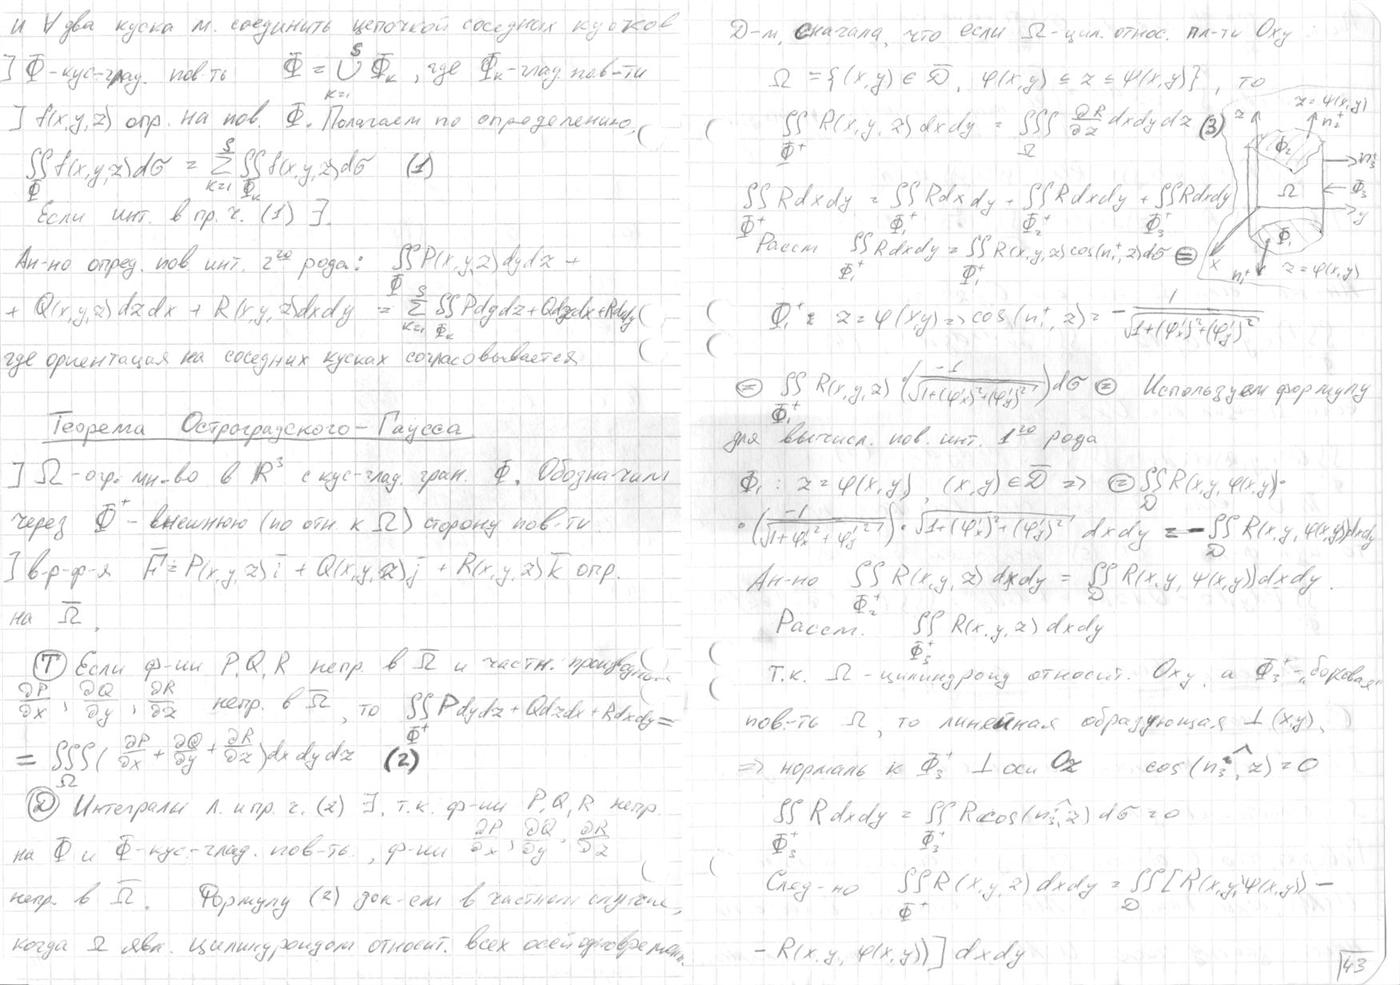 и ∀ два куска м. соединить цепочкой соседних кусков
] Φ-кус-глад. пов-ть Φ = ∪_{k=1}^{S} Φ_k, где Φ_k-глад. пов-ти
] f(x,y,z) опр. на пов. Φ. Полагаем по определению,
∬_Φ f(x,y,z)dσ = Σ_{k=1}^{S} ∬_{Φ_k} f(x,y,z)dσ (1)
Если инт. в пр. ч. (1) ∃.
Ан-но опред. пов инт. 2го рода: ∬_Φ P(x,y,z)dydz +
+ Q(x,y,z)dzdx + R(x,y,z)dxdy = Σ_{k=1}^{S} ∬_{Φ_k} Pdydz+Qdzdx+Rdxdy
где ориентация на соседних кусках согласовывается
Теорема Остроградского-Гаусса
] Ω-огр. мн-во в R³ с кус-глад. гран. Φ. Обозначим
через Φ⁺-внешнюю (по отн. к Ω) сторону пов-ти.
] в-р-ф-я F̄ = P(x,y,z)ī + Q(x,y,z)j̄ + R(x,y,z)k̄ опр.
на Ω̄.
(Т) Если ф-ии P,Q,R непр. в Ω̄ и частн. производные
∂P/∂x, ∂Q/∂y, ∂R/∂z непр. в Ω̄, то ∬_{Φ⁺} Pdydz+Qdzdx+Rdxdy =
= ∭_Ω (∂P/∂x + ∂Q/∂y + ∂R/∂z)dxdydz (2)
(Д) Интегралы л. и пр. ч. (2) ∃, т.к. ф-ии P,Q,R непр.
на Φ и Φ-кус-глад. пов-ть, ф-ии ∂P/∂x, ∂Q/∂y, ∂R/∂z
непр. в Ω̄. Формулу (2) док-ем в частном случае,
когда Ω явл. цилиндроидом относит. всех осей одновременно.
Д-м, сначала, что если Ω-цил. относ. пл-ти Oxy
Ω = {(x,y) ∈ D̄, φ(x,y) ≤ z ≤ ψ(x,y)}, то
∬_{Φ⁺} R(x,y,z)dxdy = ∭_Ω ∂R/∂z dxdydz (3)
z z=ψ(x,y)
n₂⁺
Φ₂
n₃⁺
Ω Φ₃
y
Φ₁
x n₁⁺ z=φ(x,y)
∬_{Φ⁺} Rdxdy = ∬_{Φ₁⁺} Rdxdy + ∬_{Φ₂⁺} Rdxdy + ∬_{Φ₃⁺} Rdxdy
Рассм ∬_{Φ₁⁺} Rdxdy = ∬_{Φ₁⁺} R(x,y,z)cos(n₁⁺,z)dσ ⊜
Φ₁⁺: z = φ(x,y) => cos(n₁⁺,z) = - 1/√(1+(φ'x)²+(φ'y)²)
⊜ ∬_{Φ₁⁺} R(x,y,z)·(-1/√(1+(φ'x)²+(φ'y)²))dσ ⊜ Используем формулу
для вычисл. пов. инт. 1го рода
Φ₁: z = φ(x,y), (x,y)∈D̄ => ⊜ ∬_D R(x,y,φ(x,y))·
·(-1/√(1+φ'x²+φ'y²))·√(1+(φ'x)²+(φ'y)²) dxdy = -∬_D R(x,y,φ(x,y))dxdy
Ан-но ∬_{Φ₂⁺} R(x,y,z)dxdy = ∬_D R(x,y,ψ(x,y))dxdy.
Рассм. ∬_{Φ₃⁺} R(x,y,z)dxdy
Т.к. Ω-цилиндроид относит. Oxy, а Φ₃⁺-"боковая"
пов-ть Ω, то линейная образующая ⊥ (x,y),
=> нормаль к Φ₃⁺ ⊥ оси Oz cos(n₃^,z)=0
∬_{Φ₃⁺} Rdxdy = ∬_{Φ₃⁺} Rcos(n₃^,z)dσ=0
След-но ∬_{Φ⁺} R(x,y,z)dxdy = ∬_D [R(x,y,ψ(x,y)) -
- R(x,y,φ(x,y))]dxdy
43